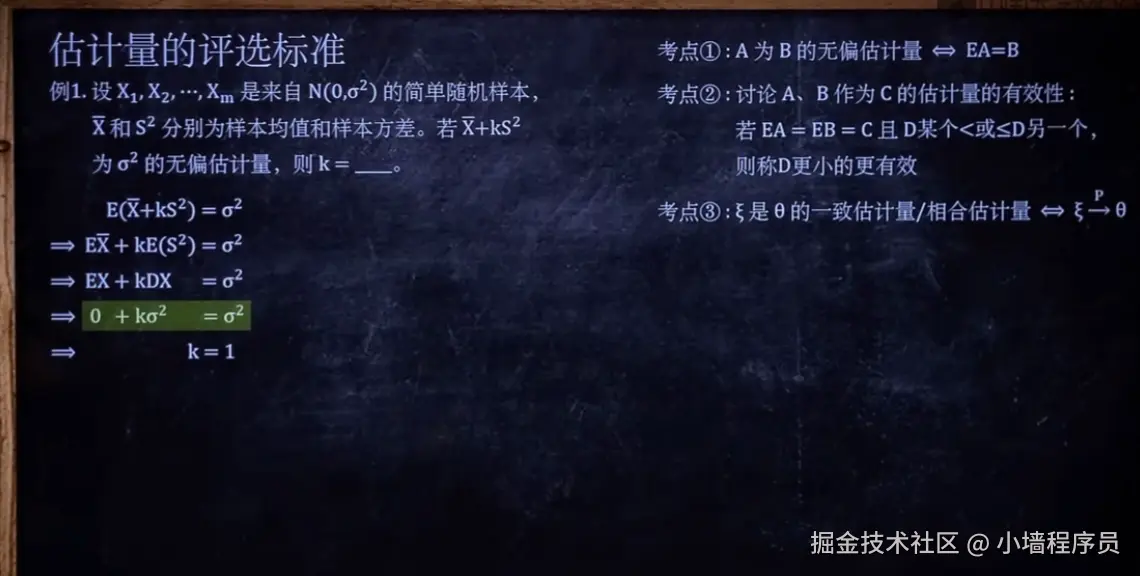 估计量的评选标准
例1. 设 X₁, X₂, ⋯, Xₘ 是来自 N(0,σ²) 的简单随机样本，
X̅ 和 S² 分别为样本均值和样本方差。若 X̅+kS²
为 σ² 的无偏估计量，则 k = ____。
E(X̅+kS²) = σ²
⟹ EX̅ + kE(S²) = σ²
⟹ EX + kDX = σ²
⟹ 0 + kσ² = σ²
⟹ k = 1
考点①：A 为 B 的无偏估计量 ⇔ EA=B
考点②：讨论 A、B 作为 C 的估计量的有效性：
若 EA = EB = C 且 D某个<或≤D另一个，
则称D更小的更有效
考点③：ξ 是 θ 的一致估计量/相合估计量 ⇔ ξ →ᴾ θ
掘金技术社区 @ 小墙程序员